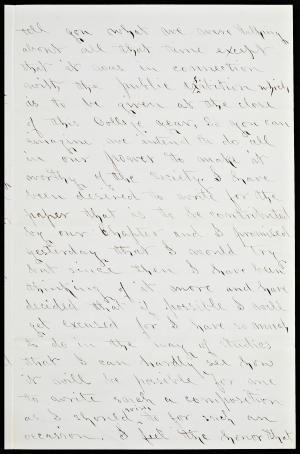 tell you what we were talking
about all that time except
that it was in connection
with the public exibition which
is to be given at the close
of this College year, So you can
imagine we intend to do all
in our power to make it
worthy of the Society. I have
been desered to write for the
paper that is to be contributed
by our Chapter and I promised
yesterday that I would try
but since then I have been
thinking of it more and have
decided that if possible I will
get excused for I have so much
to do in the way of studies
that I can hardly see how
it will be possible for me
to write such a composition
as I should to for such an
occasion. I feel the honor that